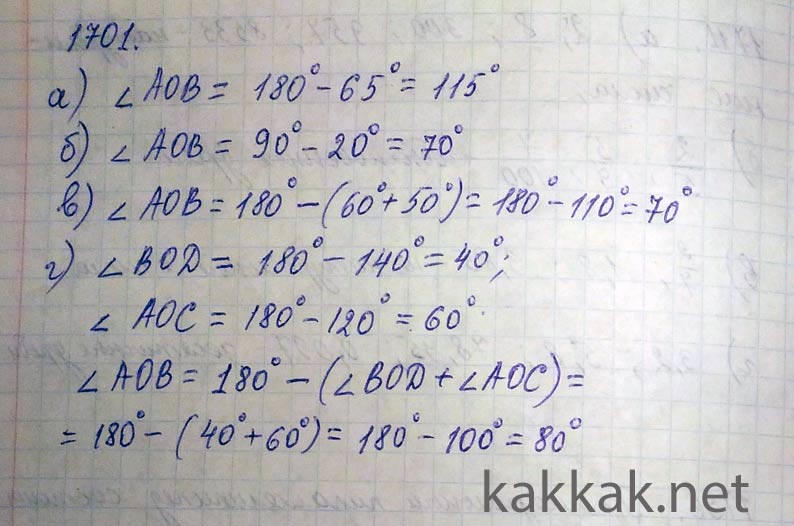 1701.
а) ∠AOB = 180° - 65° = 115°
б) ∠AOB = 90° - 20° = 70°
в) ∠AOB = 180° - (60° + 50°) = 180° - 110° = 70°
г) ∠BOD = 180° - 140° = 40°;
∠AOC = 180° - 120° = 60°.
∠AOB = 180° - (∠BOD + ∠AOC) =
= 180° - (40° + 60°) = 180° - 100° = 80°
kakkak.net